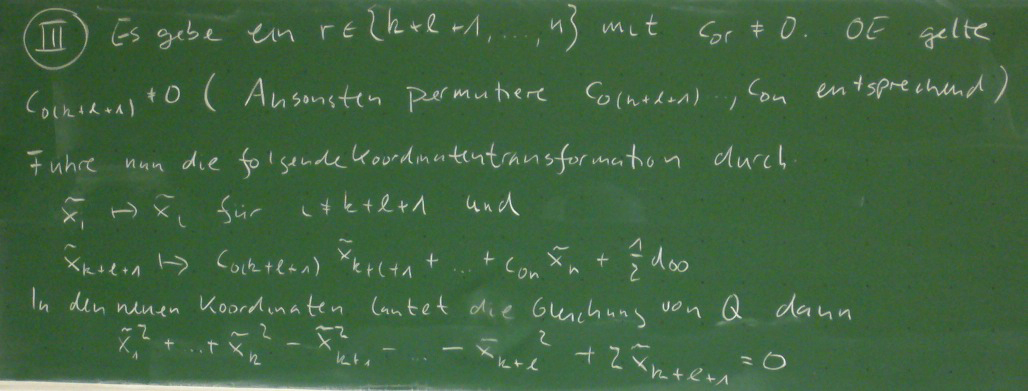 III Es gebe ein r ∈ {k+l+1, ..., n} mit c₀ᵣ ≠ 0. OE gelte
c₀₍ₖ₊ₗ₊₁₎ ≠ 0 ( Ansonsten permutiere c₀₍ₖ₊ₗ₊₁₎ ..., c₀ₙ entsprechend )
Führe nun die folgende Koordinatentransformation durch.
x̃ᵢ ↦ x̃ᵢ für i ≠ k+l+1 und
x̃ₖ₊ₗ₊₁ ↦ c₀₍ₖ₊ₗ₊₁₎ x̃ₖ₊ₗ₊₁ + ... + c₀ₙ x̃ₙ + 1/2 d₀₀
In den neuen Koordinaten lautet die Gleichung von Q dann
x̃₁² + ... + x̃ₖ² - x̃ₖ₊₁² - ... - x̃ₖ₊ₗ² + 2 x̃ₖ₊ₗ₊₁ = 0